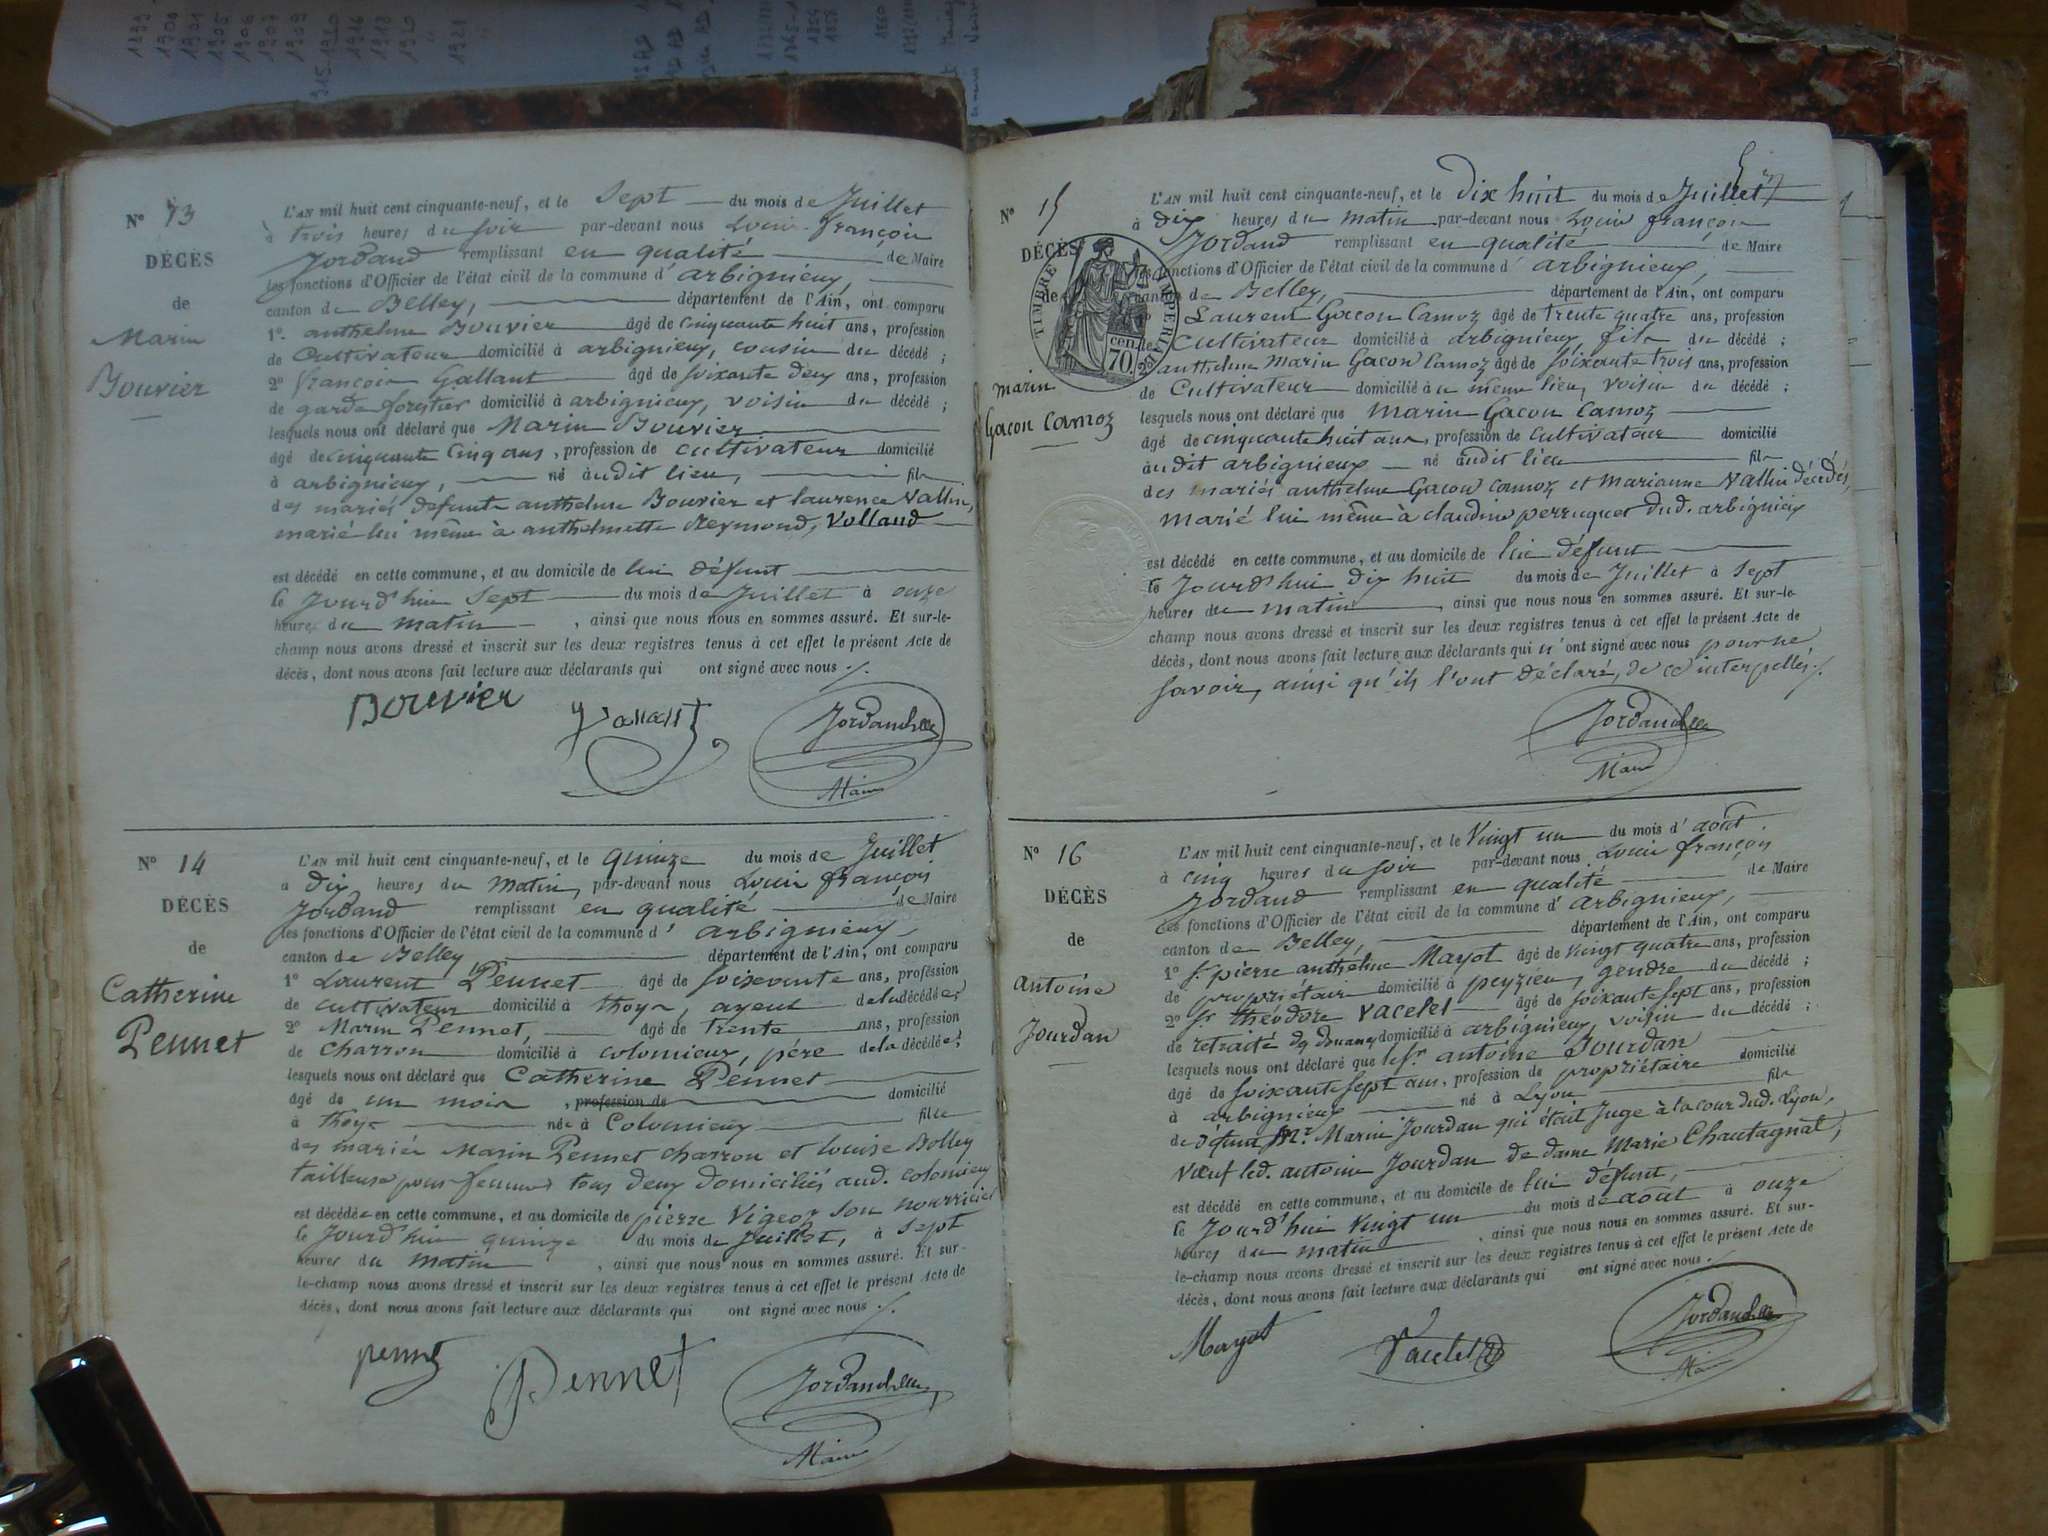 1899
1900
1901
1905
1906
1907
1909
1915-1920
1916
1918
1920
1921
N° 13
DÉCÈS
de
Marin
Bouvier
L'AN mil huit cent cinquante-neuf, et le sept du mois de Juillet
à trois heures du soir par-devant nous Louis françois
Jordand remplissant en qualité de Maire
les fonctions d'Officier de l'état civil de la commune d'arbignieux,
canton de Belley, département de l'Ain, ont comparu
1°. anthelme Bouvier âgé de cinquante huit ans, profession
de Cultivateur domicilié à arbignieux, cousin du décédé ;
2° françois Gallant âgé de soixante deux ans, profession
de garde forestier domicilié à arbignieux, voisin du décédé ;
lesquels nous ont déclaré que Marin Bouvier
âgé de cinquante cinq ans, profession de cultivateur domicilié
à arbignieux, né audit lieu, fils
des mariés defunts anthelme Bouvier et laurence Vallin,
marié lui même à anthelmette Reymond, Volland
est décédé en cette commune, et au domicile de lui défunt
le Jourd'hui sept du mois de Juillet à onze
heures du matin, ainsi que nous nous en sommes assuré. Et sur-le-
champ nous avons dressé et inscrit sur les deux registres tenus à cet effet le présent Acte de
décès, dont nous avons fait lecture aux déclarants qui ont signé avec nous ./.
Bouvier
Jordand
Maire
N° 14
DÉCÈS
de
Catherine
Pennet
L'AN mil huit cent cinquante-neuf, et le quinze du mois de Juillet
à dix heures du matin, par-devant nous Louis françois
Jordand remplissant en qualité de Maire
les fonctions d'Officier de l'état civil de la commune d'arbignieux
canton de Belley département de l'Ain, ont comparu
1° Laurent Pennet âgé de soixante ans, profession
de cultivateur domicilié à thoys, ayeul de la décédée;
2° Marin Pennet, âgé de trente ans, profession
de charron domicilié à colomieux, père de la décédée;
lesquels nous ont déclaré que Catherine Pennet
âgé de un mois, profession de domicilié
à thoys née à Colomieux fille
des mariés Marin Pennet charron et louise Bolley
tailleuse pour femmes tous deux domiciliés aud. colomieu
est décédée en cette commune, et au domicile de pierre Vigeoz son nourricier
le Jourd'hui quinze du mois de Juillet, à sept
heures du matin, ainsi que nous nous en sommes assuré. Et sur-
le-champ nous avons dressé et inscrit sur les deux registres tenus à cet effet le présent Acte de
décès, dont nous avons fait lecture aux déclarants qui ont signé avec nous ./.
pennet
Pennet
Jordand
Maire
N° 15
DÉCÈS
de
TIMBRE IMPERIAL
70 cen.
marin
Gacon Camoz
L'AN mil huit cent cinquante-neuf, et le dix huit du mois de Juillet
à dix heures du matin par-devant nous Louis françois
Jordand remplissant en qualité de Maire
les fonctions d'Officier de l'état civil de la commune d'arbignieux,
canton de Belley, département de l'Ain, ont comparu
Laurent Gacon Camoz âgé de trente quatre ans, profession
Cultivateur domicilié à arbignieux, fils du décédé ;
anthelme Marin Gacon Camoz âgé de soixante trois ans, profession
de Cultivateur domicilié au même lieu, voisin du décédé ;
lesquels nous ont déclaré que Marin Gacon Camoz
âgé de cinquante huit ans, profession de cultivateur domicilié
audit arbignieux né audit lieu fils
des mariés anthelme Gacon Camoz et Marianne Vallin décédés,
marié lui même à claudine perruquet dud. arbignieux
est décédé en cette commune, et au domicile de lui défunt
le Jourd'hui dix huit du mois de Juillet à sept
heures du matin, ainsi que nous nous en sommes assuré. Et sur-le-
champ nous avons dressé et inscrit sur les deux registres tenus à cet effet le présent Acte de
décès, dont nous avons fait lecture aux déclarants qui n'ont signé avec nous pour ne
savoir, ainsi qu'ils l'ont déclaré, de ce interpellés ./.
Jordand
Maire
N° 16
DÉCÈS
de
Antoine
Jourdan
L'AN mil huit cent cinquante-neuf, et le Vingt un du mois d'août
à cinq heures du soir par-devant nous Louis françois
Jordand remplissant en qualité de Maire
les fonctions d'Officier de l'état civil de la commune d'arbignieux,
canton de Belley, département de l'Ain, ont comparu
1° Sr pierre anthelme Mayot âgé de vingt quatre ans, profession
de propriétaire domicilié à peyzieu, gendre du décédé ;
2° Sr théodore Vacelet âgé de soixante sept ans, profession
de retraité de douanes domicilié à arbignieux, voisin du décédé ;
lesquels nous ont déclaré que le Sr antoine Jourdan
âgé de soixante sept ans, profession de propriétaire domicilié
à arbignieux né à Lyon fils
de défunt Mr. Marin Jourdan qui était Juge à la cour dud. Lyon,
Vœuf led. antoine Jourdan de dame Marie Chautagnat,
est décédé en cette commune, et au domicile de lui défunt,
le Jourd'hui Vingt un du mois de août à onze
heures du matin, ainsi que nous nous en sommes assuré. Et sur-
le-champ nous avons dressé et inscrit sur les deux registres tenus à cet effet le présent Acte de
décès, dont nous avons fait lecture aux déclarants qui ont signé avec nous ./.
Mayot
Vacelet
Jordand
Maire